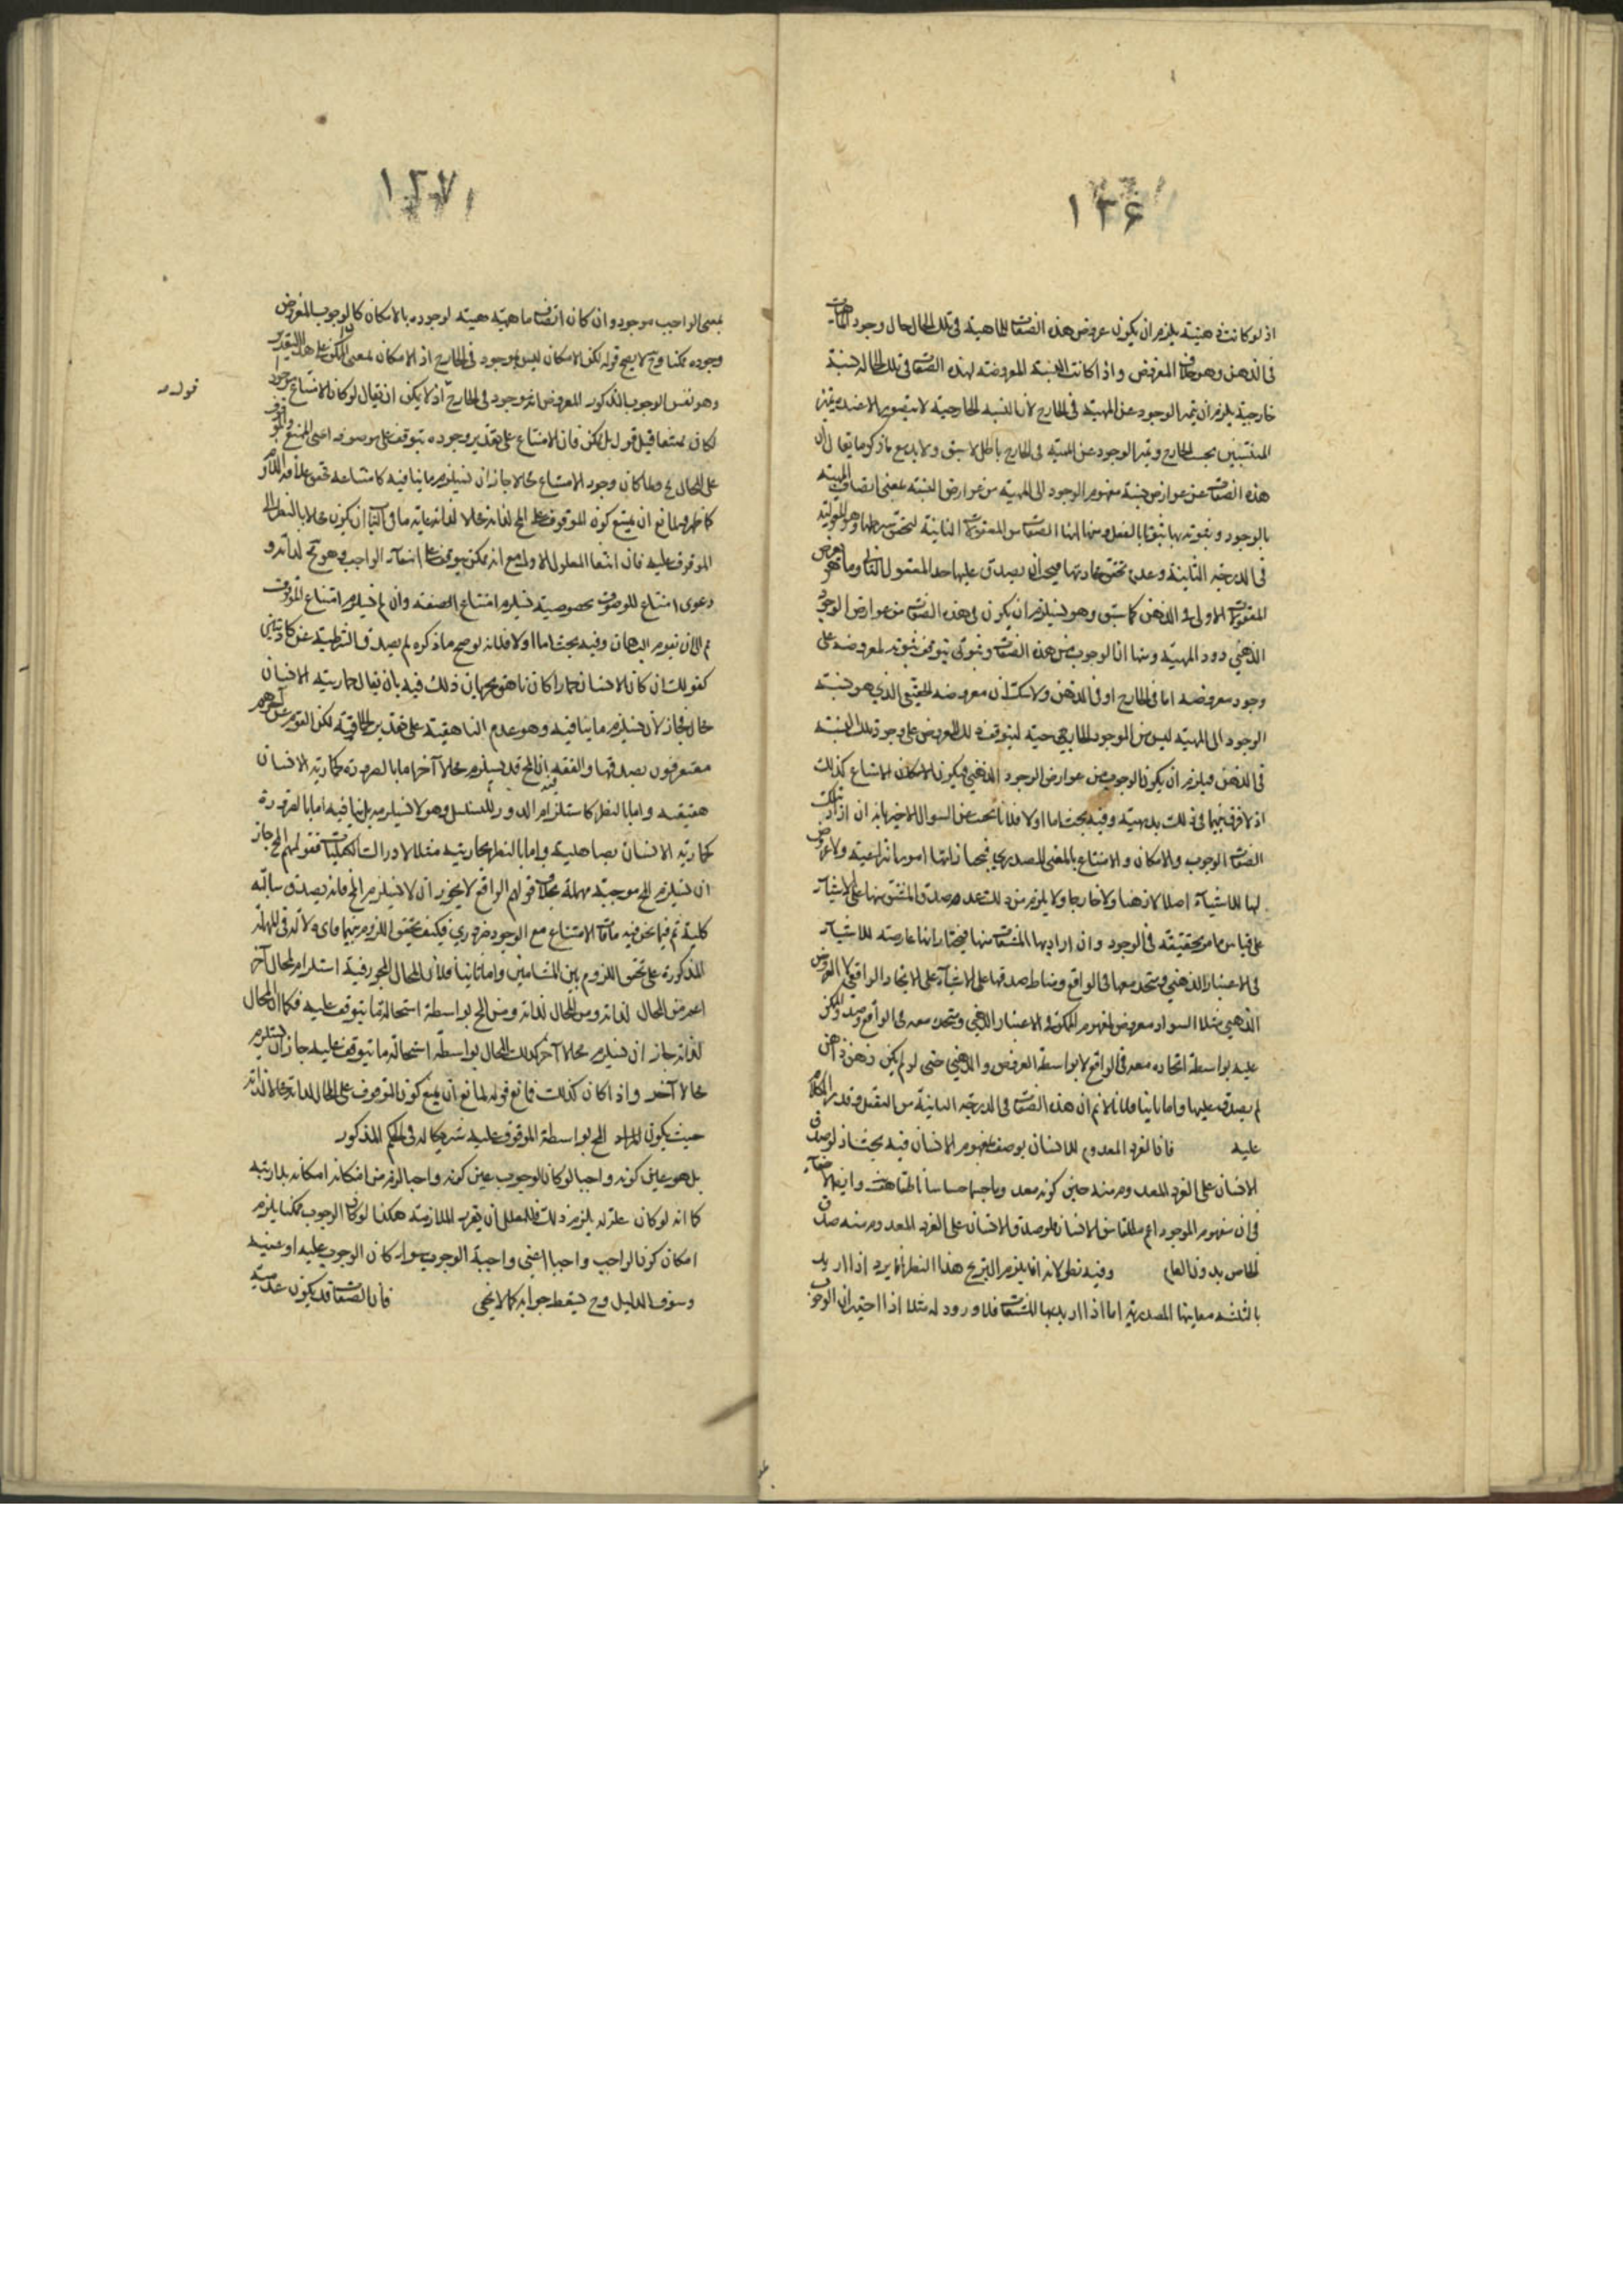 ١٢۶
اذ لو كانت ذهنية يلزم ان يكون عروض هذه الصفات للماهية فى تلك الحال حال وجود الماهيات
فى الذهن وهو خلاف المفروض واذا كانت النسبة المعروضة لهذه الصفات فى تلك الحالة نسبة
خارجية يلزم ان يتميز الوجود عن المهية فى الخارج لان النسبة الخارجية لا يتصور الا عند تميز
المنتسبين بحسب الخارج وتميز الوجود عن المهية فى الخارج باطل لما سبق ولا يدفع ما ذكر ما يقال ان
هذه الصفات من عوارض نسبة مفهوم الوجود الى المهية من عوارض النسبة بمعنى اتصاف المهية
بالوجود وثبوته لها ثبوتا بالفعل ومنها ان هذه الصفات من المعقولات الثانية لتحقق شرطها وهو المعقولية
فى الدرجة الثانية وعدم تحقق محاذيها فيجب ان يصدق عليها حد المعقول الثانى وما هو يعرض
المعقولات الاولى فى الذهن كما سبق وهو يستلزم ان يكون هذه الصفات من عوارض الوجود
الذهنى دون المهية ومنها ان الوجوب من هذه الصفات وثبوتى يتوقف ثبوته لمعروضه على
وجود معروضه اما فى الخارج او فى الذهن ولا شك ان معروضه الحقيقى الذى هو نسبة
الوجود الى المهية ليس من الموجود الخارجى حتى يتوقف ذلك العروض على وجود تلك النسبة
فى الذهن فيلزم ان يكون الوجوب من عوارض الوجود الذهنى فيكون الامكان والامتناع كذلك
اذ لا فرق بينهما فى ذلك بديهية وفيه بحث اما اولا فلانا نبحث عن السؤال الاخير بانه ان اراد بتلك
الصفات الوجوب والامكان والامتناع بالمعنى المصدرى فيختار انها امور انتزاعية ولا عروض
لها للاشياء اصلا لا ذهنا ولا خارجا ولا يلزم من ذلك عدم صدق المشتق منها على الاشياء
على قياس ما مر تحقيقه فى الوجود وان اراد بها المشتقات منها فيختار انها عارضة للاشياء
فى الاعتبار الذهنى ومتحد معها فى الواقع ومناط صدقها على الاشياء على الاتحاد الواقعى لا العروض
الذهنى مثلا السواد معروض لمفهوم الممكن فى الاعتبار الذهنى ومتحد معه فى الواقع وصدق الممكن
عليه بواسطة اتحاده معه فى الواقع لا بواسطة العروض الذهنى حتى لو لم يكن ذهن ذاهن
لم يصدق عليها واما ثانيا فلانا لا نم ان هذه الصفات فى الدرجة الثانية من التعقل وقد مر الكلام
عليه فان الفرد المعدوم للانسان يوصف بمفهوم الانسان فيه بحث اذ لو صدق
الانسان على الفرد المعدوم منه حين كونه معدوما جسما حساسا ناطقا هف وايضا لا خفاء
فى ان مفهوم الموجود اعم مطلقا من الانسان فلو صدق الانسان على الفرد المعدوم منه صدق
الخاص بدون العام وفيه نظر لانه انما يلزم التبريح هذا النظر انما يرد اذا اريد
بالثلثة معانيها المصدرية اما اذا اريد بها المشتقات فلا ورود له مثلا اذا اختير ان الوجوب
١٢٧
بمعنى الواجب موجود وان كان اتصاف ماهيته هيته لوجوده بالامكان كالوجوب المفروض
وجوده ممكنا وح لا يصح قوله لكن الامكان ليس بموجود فى الخارج اذ الامكان بمعنى الممكن على هذا التقدير
وهو نفس الوجوب المذكور المفروض انه موجود فى الخارج اذ لا يمكن ان يقال لو كان الامتناع موجودا
لكان ممتنعا قيل قول بل يمكن فان الامتناع على تقدير وجوده يتوقف على موصوفه اعنى الممتنع والموقوف
على المحال مح ولما كان وجود الامتناع محالا جاز ان يستلزم ما ينافيه
قوله
الموقوف عليه فان انتفاء المعلول الاول مع انه ممكن يتوقف على انتفاء الواجب وهو مح لذاته و
دعوى امتناع الموصوف بخصوصية يستلزم امتناع الصفة وان لم يستلزم امتناع الموقوف
مم الى ان يقوم البرهان وفيه بحث اما اولا فلانه لو صح ما ذكره لم يصدق الشرطية عن كاذبتين
كقولك ان كان الانسان حمارا كان ناهقا لجريان ذلك فيه بان يقال حمارية الانسان
محال فجاز لان يستلزم ما ينافيه وهو عدم الناهقية على تقدير الحمارية لكن القوم عن آخرهم
معترفون بصدقها والفقه ان المح قد يستلزم محالا آخر اما بالضرورة كحمارية الانسان
حقيقته واما بالنظر كاستلزام الدور للتسلسل وهو لا يستلزمه بل ينافيه اما بالضرورة
كحمارية الانسان بصاهليته واما بالنظر
ان يستلزم المح موجبة مهملة بخلاف قولهم الواقع لا يجوز ان لا يستلزم المح فانه يصدق سالبة
كلية ثم فيما نحن فيه منافاة الامتناع مع الوجود ضرورى فكيف يتحقق اللزوم بينهما واى دلالة فى المهملة
المذكورة على تحقق اللزوم بين المتنافيين واما ثانيا فلان المحال المجوز فيه استلزام المحال آخر
اعم من المحال لذاته ومن المح بواسطة استحالة ما يتوقف عليه فكما ان المحال
لذاته جاز ان يستلزم محالا آخر كذلك المحال بواسطة استحالة ما يتوقف عليه جاز ان يستلزم
محالا آخر واذا كان كذلك فما نع قوله لمانع ان يمنع كون الموقوف على المحال لذاته محالا لذاته
حيث يكون المراد المح بواسطة الموقوف عليه شريكا له فى الحكم المذكور
بل هو عين كونه واجبا لو كان الوجوب عين كونه واجبا لزم من امكانه امكانه بلا ريبة
كما انه لو كان علة له يلزم ذلك فللمعلل ان يقرر الملازمة هكذا لو كان الوجوب ممكنا يلزم
امكان كون الواجب واجبا اعنى واجبية الوجوب سواء كان الوجوب علية او عينه
وسوق الدليل وح يسقط جوابه كما لا يخفى فان الصفات قد يكون عدمية